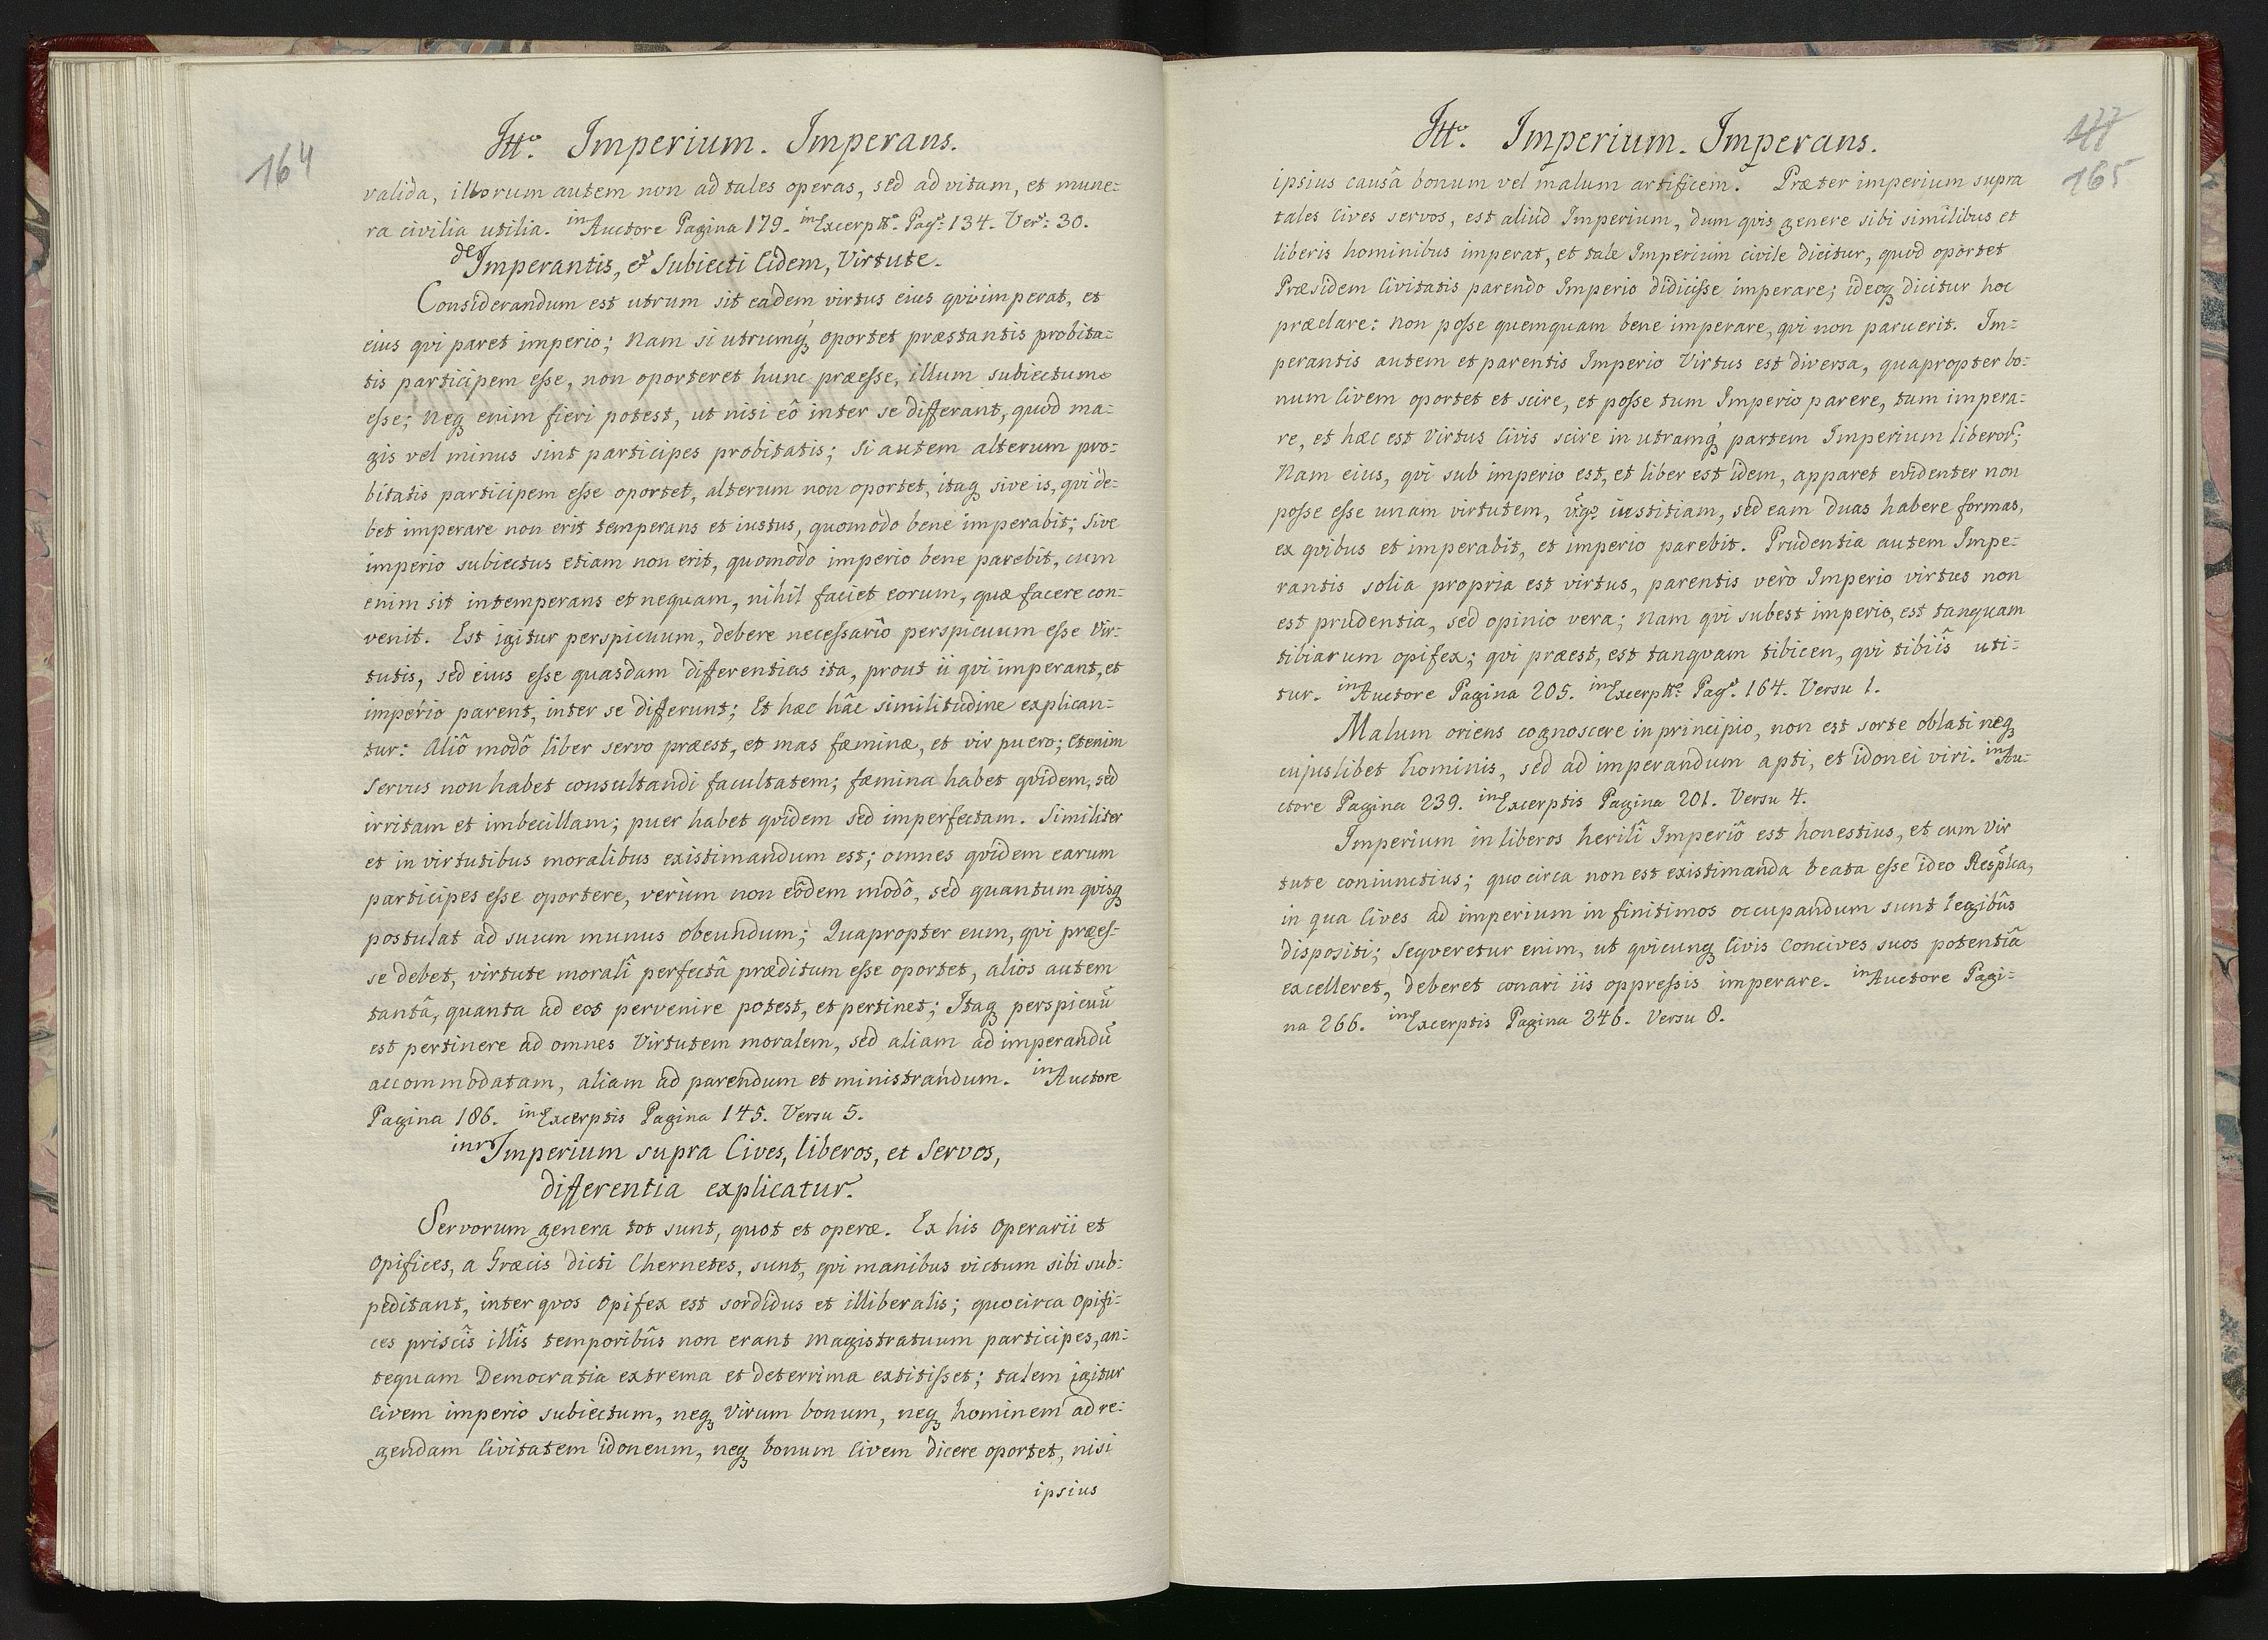 164
Itt.o Imperium. Imperans.
valida, illorum autem non ad tales operas, sed ad vitam, et mune=
ra civilia utilia. in Auctore Pagina 179. in Excerptis. Pag: 134. Ver: 30.
de Imperantis, et Subiecti Eidem, Virtute.
Considerandum est utrum sit eadem virtus eius qui imperat, et
eius qvi paret imperio; Nam si utrumq́ oportet præstantis probita=
tis participem esse, non oporteret hunc præesse, illum subiectum
esse; Neq enim fieri potest, ut nisi eô inter se differant, quod ma=
gis vel minus sint participes probitatis; Si autem alterum pro=
bitatis participem esse oportet, alterum non oportet, itaq sive is, qvi de=
bet imperare non erit temperans et iustus, quomodo bene imperabit; Sive
imperio subiectus etiam non erit, quomodo imperio bene parebit, cum
enim sit intemperans et nequam, nihil faciet eorum, quæ facere con=
venit. Est igitur perspicuum, debere necessariò perspicuum esse Vir=
tutis, sed eius esse quasdam differentias ita, prout ii qvi imperant, et
imperio parent, inter se differunt; Et hæc hâc similitudine explican=
tur: Aliô modô liber servo præest, et mas fæminæ, et vir puero; Etenim
Servus non habet consultandi facultatem; fæmina habet qvidem, sed
irritam et imbecillam; puer habet qvidem sed imperfectam. Similiter
et in virtutibus moralibus existimandum est; omnes qvidem earum
participes esse oportere, verùm non eôdem modô, sed quantum qvisq
postulat ad suum munus obeundum; Quapropter eum, qvi præes=
se debet, virtute moralî perfectâ præditum esse oportet, alios autem
tantâ, quanta ad eos pervenire potest, et pertinet; Itaq perspicuū
est pertinere ad omnes Virtutem moralem, sed aliam ad imperandū
accommodatam, aliam ad parendum et ministrandum. in Auctore
Pagina 186. in Excerptis Pagina 145. Versu 5.
inr Imperium supra Cives, liberos, et Servos,
differentia explicatur.
Servorum genera tot sunt, quot et operæ. Ex his Operarii et
Opifices, a Græcis dicti Chernetes, sunt, qvi manibus victum sibi sub=
peditant, inter qvos Opifex est sordidus et illiberalis; quocirca Opifi=
ces priscîs illîs temporibûs non erant Magistratuum participes, an=
tequam Democratia extrema et deterrima extitisset; talem igitur
Civem imperio subiectum, neq Virum bonum, neq hominem ad re=
gendam Civitatem idoneum, neq bonum Civem dicere oportet, nisi
ipsius
165
Itt.o Imperium. Imperans.
ipsius causâ bonum vel malum artificem. Præter imperium supra
tales Cives servos, est aliud Imperium, dum qvis genere sibi similibus et
liberis hominibus imperat, et tale Imperium civile dicitur, quod oportet
Præsidem Civitatis parendo Imperio didicisse imperare; ideoq dicitur hoc
præclare: Non posse quemquam bene imperare, qvi non paruerit. Im=
perantis autem et parentis Imperio Virtus est diversa, quapropter bo=
num Civem oportet et scire, et posse tum Imperio parere, tum impera=
re, et hæc est Virtus Civis scire in utramq́ partem Imperium liberor;
Nam eius, qvi sub imperio est, et liber est idem, apparet evidenter non
posse esse unam virtutem, v̄g iustitiam, sed eam duas habere formas,
ex qvibus et imperabit, et imperio parebit. Prudentia autem Impe=
rantis solia propria est virtus, parentis verò Imperio virtus non
est prudentia, sed opinio vera; Nam qvi subest imperio, est tanquam
tibiarum opifex; qvi præest, est tanqvam tibicen, qvi tibiîs uti=
tur. in Auctore Pagina 205. in Excerptis Pag. 164. Versu 1.
Malum oriens cognoscere in principio, non est sorte oblati neq
cujuslibet hominis, sed ad imperandum apti, et idonei viri. in Au=
ctore Pagina 239. in Excerptis Pagina 201. Versu 4.
Imperium in liberos herilî Imperiô est honestius, et cum Vir
tute coniunctius; quocirca non est existimanda beata esse ideo Resp̄lca,
in qua Cives ad imperium in finitimos occupandum sunt legibûs
dispositi; Seqveretur enim, ut qvicunq Civis Concives suos potentiâ
excelleret, deberet conari iis oppressis imperare. in Auctore Pagi=
na 266. in Excerptis Pagina 246. Versu 8.